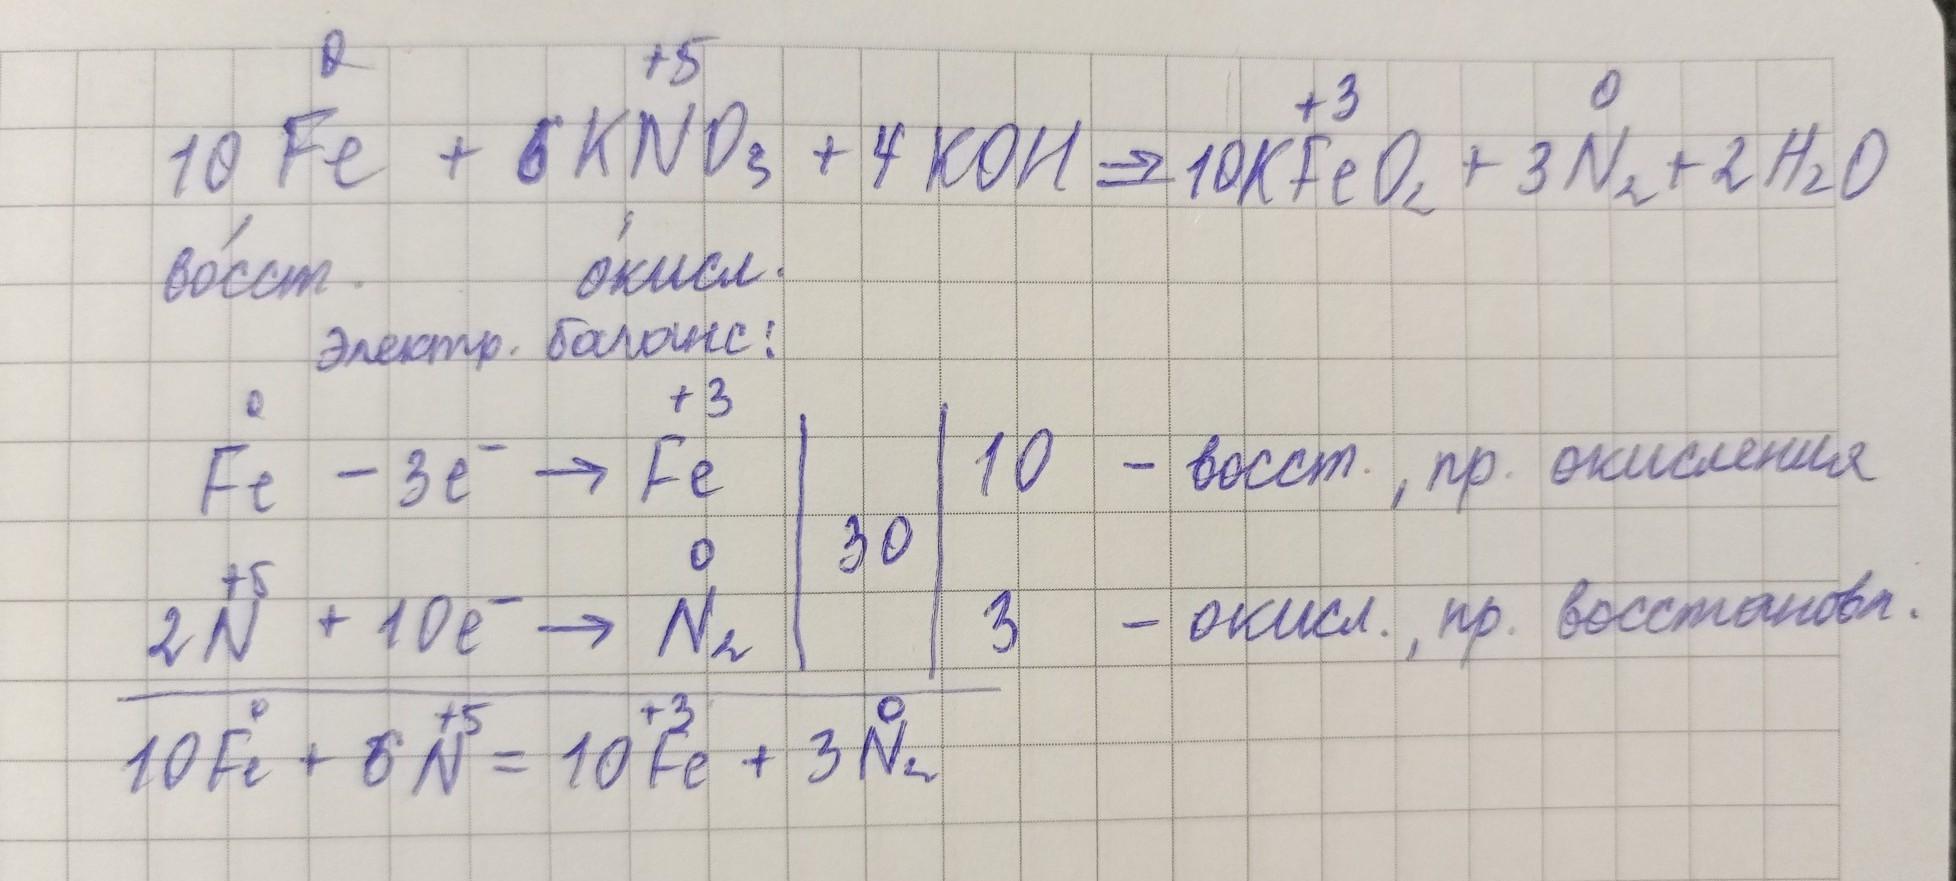 0 +5 +3 0
10 Fe + 6KNO3 + 4KOH => 10KFeO2 + 3N2 + 2H2O
восст. окисл.
электр. баланс:
0 +3
Fe - 3e⁻ → Fe | | 10 - восст., пр. окисления
30
+5 0
2N + 10e⁻ → N2 | | 3 - окисл., пр. восстановл.
0 +5 +3 0
10Fe + 6N = 10Fe + 3N2